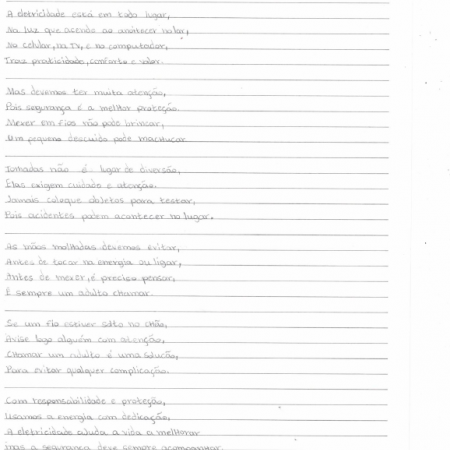 A eletricidade está em todo lugar,
Na luz que acende ao anoitecer no lar,
No celular, na TV, e no computador,
Traz praticidade, conforto e valor.
Mas devemos ter muita atenção,
Pois segurança é a melhor proteção.
Mexer em fios não pode brincar,
Um pequeno descuido pode machucar.
Tomadas não é lugar de diversão,
Elas exigem cuidado e atenção.
Jamais coloque objetos para testar,
Pois acidentes podem acontecer no lugar.
As mãos molhadas devemos evitar,
Antes de tocar na energia ou ligar,
Antes de mexer, é preciso pensar,
E sempre um adulto chamar.
Se um fio estiver solto no chão,
Avise logo alguém com atenção,
Chamar um adulto é uma solução,
Para evitar qualquer complicação.
Com responsabilidade e proteção,
Usamos a energia com dedicação,
A eletricidade ajuda a vida a melhorar
mas a segurança deve sempre acompanhar.